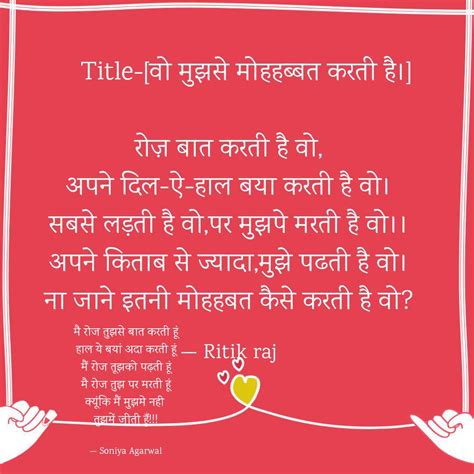 Title-[वो मुझसे मोहहब्बत करती है।]
रोज़ बात करती है वो,
अपने दिल-ऐ-हाल बया करती है वो।
सबसे लड़ती है वो,पर मुझपे मरती है वो।।
अपने किताब से ज्यादा,मुझे पढती है वो।
ना जाने इतनी मोहहबत कैसे करती है वो?
— Ritik raj
मै रोज तुझसे बात करती हूं
हाल ये बयां अदा करती हूं
मैं रोज तूझको पढ़ती हूं
मै रोज तुझ पर मरती हूं
क्यूंकि मैं मुझमे नही
तुझमें जीती हूँ!!!
— Soniya Agarwal